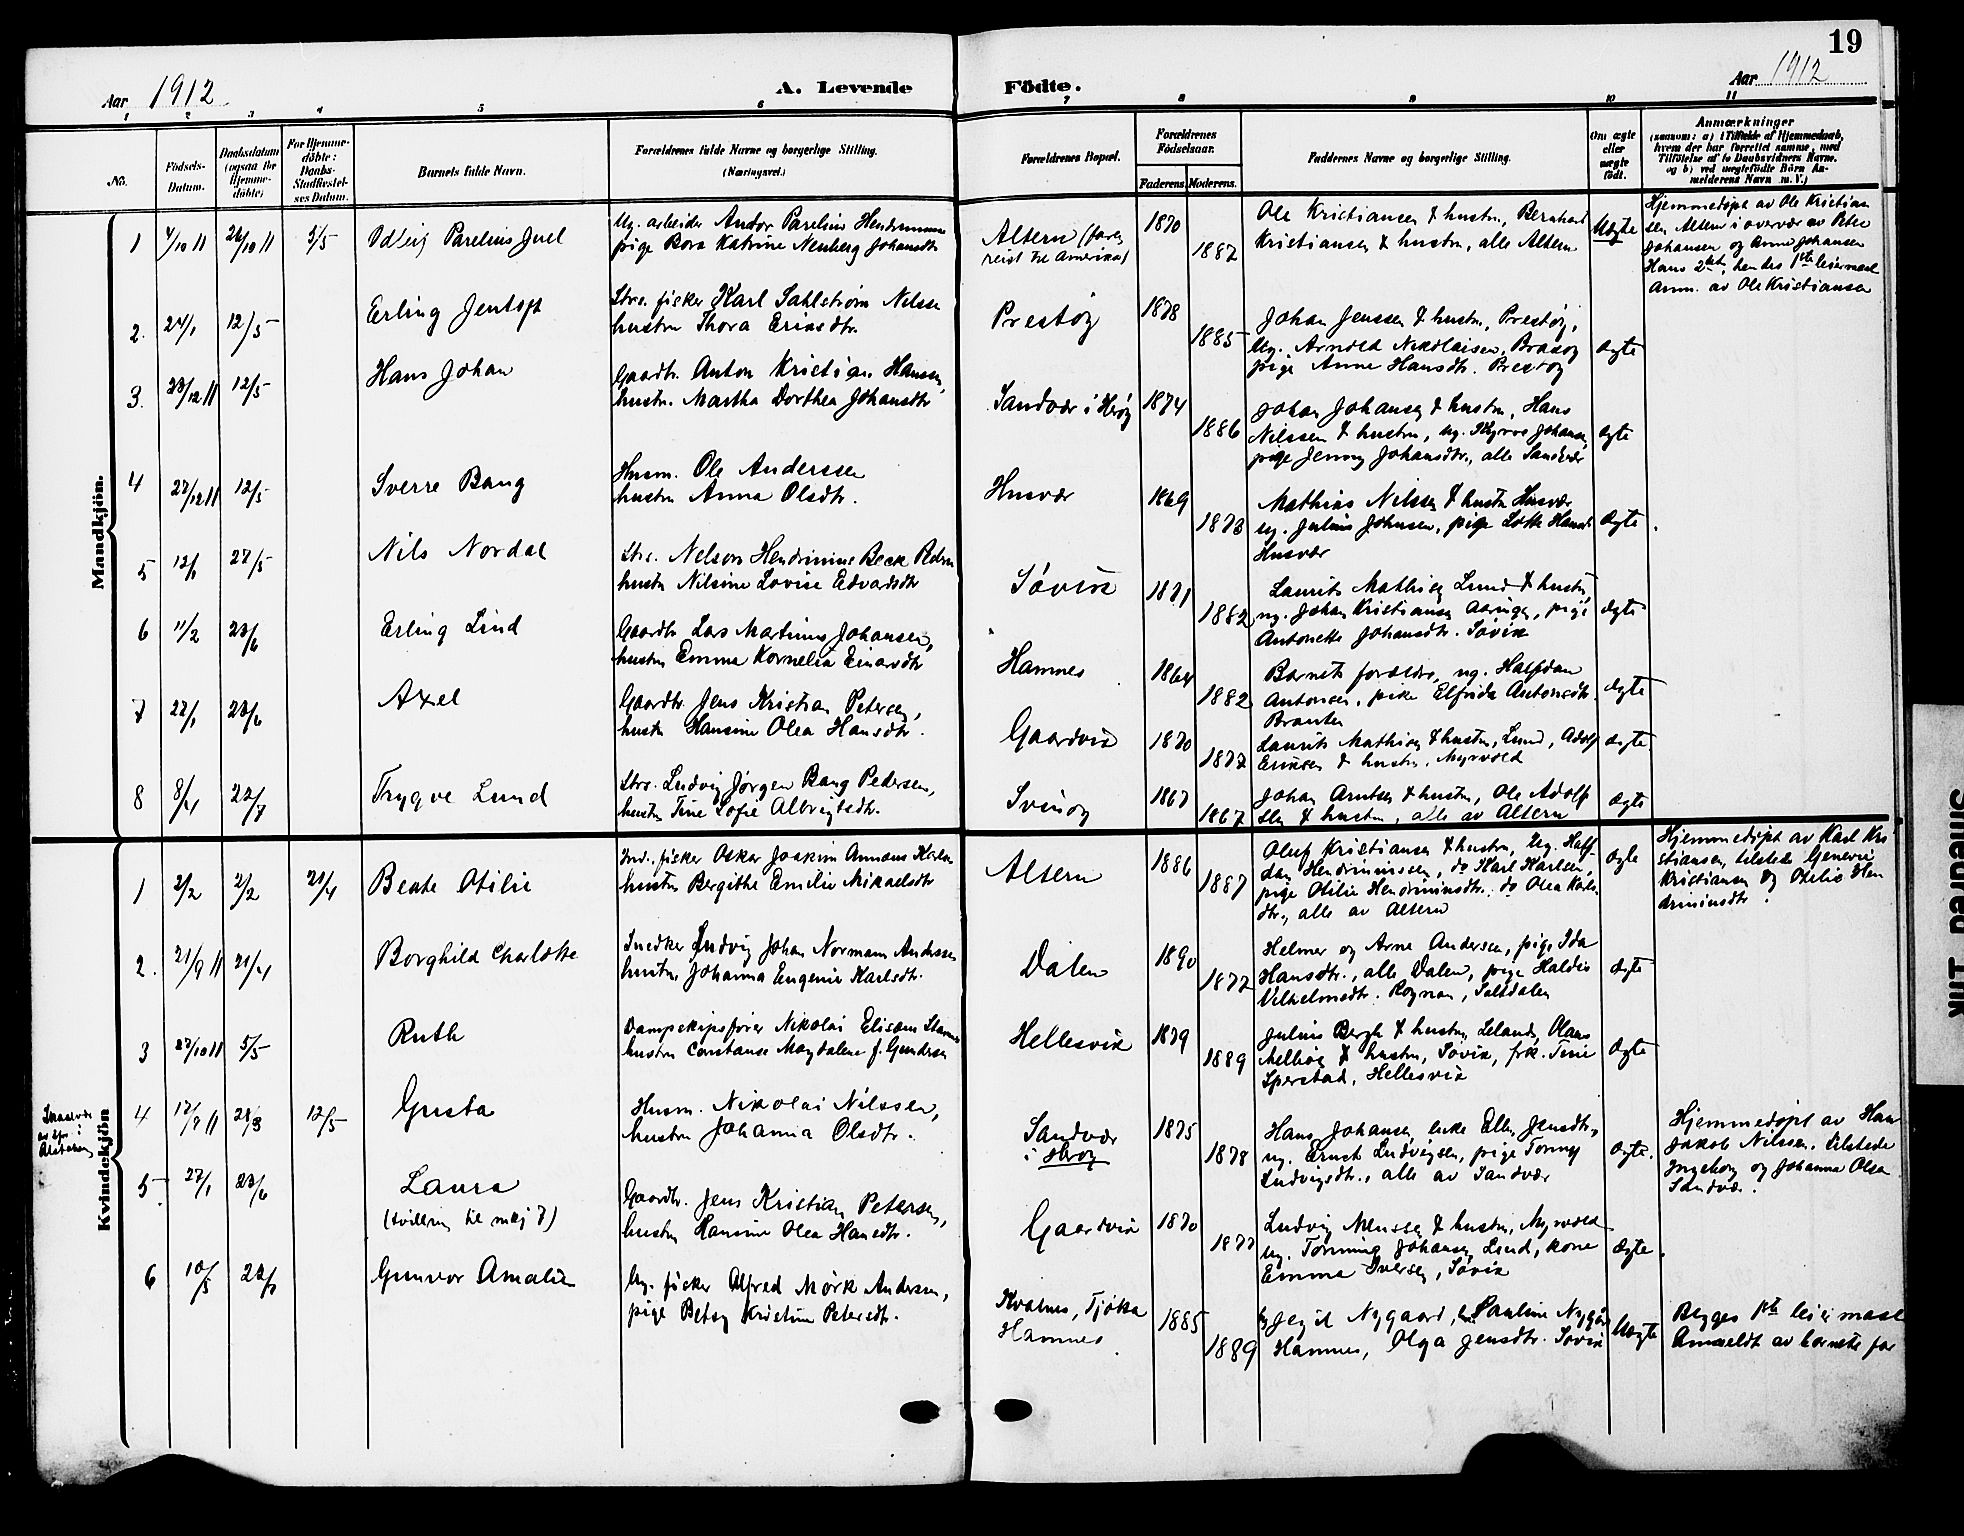 19
Aar 1912
A. Levende Födte.
Aar 1912
1 2 3 4 5 6 7 8 9 10 11
No.
Födsels-Datum.
Daabsdatum (ogsaa for Hjemme-döbte)
For Hjemme-döbte: Daabs-Stadfæstel-ses Datum.
Barnets fulde Navn.
Forældrenes fulde Navne og borgerlige Stilling. (Næringsvei.)
Forældrenes Bopæl.
Forældrenes Födselsaar.
Faderens. Moderens.
Faddernes Navne og borgerlige Stilling.
Om ægte eller uægte födt.
Anmærkninger
(saasom: a) i Tilfælde af Hjemmedaab, hvem der har forrettet samme, med Tilföielse af to Daabsvidners Navne. og b) ved uægtefödte Börn An-melderens Navn m. V.)
Mandkjön.
1 4/10 11 26/10 11 5/5 Odleif Parelius Juel
Ug. arbeider Andor Parelius Hendriksen
pige Bora Katrine Nenberg Johansdtr
Altern (fader reist til Amerika)
1870 1887
Ole Kristiansen & hustru, Bernhard
Kristiansen & hustru, alle Altern
Uægte
Hjemmedøpt av Ole Kristian
sen, Altern i overvær av Peter
Johansen og Anne Johansen
Hans 2det, hendes 1ste leiermaal
Anm. av Ole Kristiansen
2. 24/1 12/5 Erling Jentoft
Strs. fisker Karl Sahlstrøm Nilsen
hustru Thora Eriksdtr.
Prestøy
1878 1885
Johan Jenssen & hustru, Prestøy,
Ug. Arnold Nikolaisen, Brasøy
pige Anne Hansdtr. Prestøy
Ægte
3. 23/12 11 12/5 Hans Johan
Gaardbr. Anton Kristian Hansen,
hustru Martha Dorthea Johansdtr
Sandvær i Herøy
1874 1886
Johan Johansen & hustru, Hans
Nilssen & hustru, ug. Johansen,
pige Jenny Johansdtr., alle Sandvær
Ægte
4 27/12 11 12/5 Sverre Bang
Husm. Ole Anderssen
hustru Anna Olsdtr.
Husvær
1869 1873
Mathias Nilssen & hustru Husvær
ug. Julius Johnsen, pige Lotte Hansdtr
Husvær
Ægte
5 12/1 27/5 Nils Nordal
Strs. Nelson Hendrinius Beck Pedersen
hustru Nilsine Lovise Edvardsdtr
Søvik
1871 1882
Laurits Mathisen Lund & hustru,
ug. Johan Kristiansen Aaringen, pige
Antonette Johansdtr. Søvik
Ægte
6 11/2 23/6 Erling Lind
Gaardbr Lars Martinus Johansen,
hustru Emma Kornelia Einarsdtr
Hamnes
1864 1882
Barnets forældre, ug. Halfdan
Antonsen, pike Elfrida Antonsdtr.
Ægte
7 27/1 23/6 Axel
Gaardbr Jens Kristian Petersen,
hustru Hansine Olea Hansdtr.
Gaardvik
1870 1877
Laurits Mathisen & hustru, Lund, Adolf
Eriksen & hustru, Myrvold
Ægte
8 8/4 22/7 Trygve Lund
Strs. Ludvig Jørgen Bang Pedersen,
hustru Tine Sofie Albrigtsdtr.
Svinøy
1867 1867
Johan Arntsen & hustru, Ole Adolf
& hustru, alle av Altern
Ægte
Kvindekjön
1 2/2 2/2 21/4 Beate Otilie
Ind. fisker Oskar Joakim Annæus Karlsen
hustru Bergithe Emilie Mikaelsdtr
Altern
1886 1887
Oluf Kristiansen & hustru, Ug. Half
dan Hendriniussen, do Karl Karlsen,
pige Otilie Hendriniusdtr. do Olea Karls
dtr., alle av Altern
Ægte
Hjemmedøpt av Karl Kri
stiansen, tilstede Generi
Kristiansen og Otilie Hen
driniusdtr.
2. 21/9 11 21/4 Borghild Charlotte
Snedker Ludvig Johan Normann Andersen
hustru Johanna Eugenie Karlsdtr.
Dalen
1890 1877
Helmer og Arne Andersen, pige Ida
Hansdtr., alle Dalen, pige Haldis
Vilhelmsdtr. Rognan, Saltdalen
Ægte
3 27/10 11 5/5 Ruth
Dampskipsfører Nikolai Elisæus
hustru Constanse Magdalene f. Gundersen
Hellesvik
1879 1889
Julius Bergh & hustru, Leland, Olaus
& hustru, Søvik, frk. Tine
Sperstad, Hellesvik
Ægte
4 17/9 11 28/3 12/5 Gusta
Husm. Nikolai Nilssen,
hustru Johanna Olsdtr.
Sandvær
i Herøy
1875 1878
Hans Johansen, enke Ellen Jensdtr,
ug. Ernst Ludvigsen, pige Tomny
Ludvigsdtr., alle av Sandvær
Ægte.
Hjemmedøpt av Hans
Jakob Nilssen, tilstede
Ingeborg og Johanna Olsen
Sandvær.
5 27/1 23/6 Laura
(tvilling til m.kj 7)
Gaardbr. Jens Kristian Petersen,
hustru Hansine Olea Hansdtr.
Gaardvik
1870 1877
Ludvig Monsen & hustru, Myrvold
Ug. Tonning Johansen, Lund, kone
Emma Iversen, Søvik
Ægte
6 10/5 22/7 Gunvor Amalie
Ug. fisker Alfred Mørk Andersen,
pige Betsy Kristine Petersdtr.
Kvalnes, Tjøtta
Hamnes
1885 1889
Jegil Nygaard, Pauline Nygaard
Hamnes, Olga Jensdtr. Søvik
Uægte
Begges 1ste leiermaal
Anmeldt av barnets far